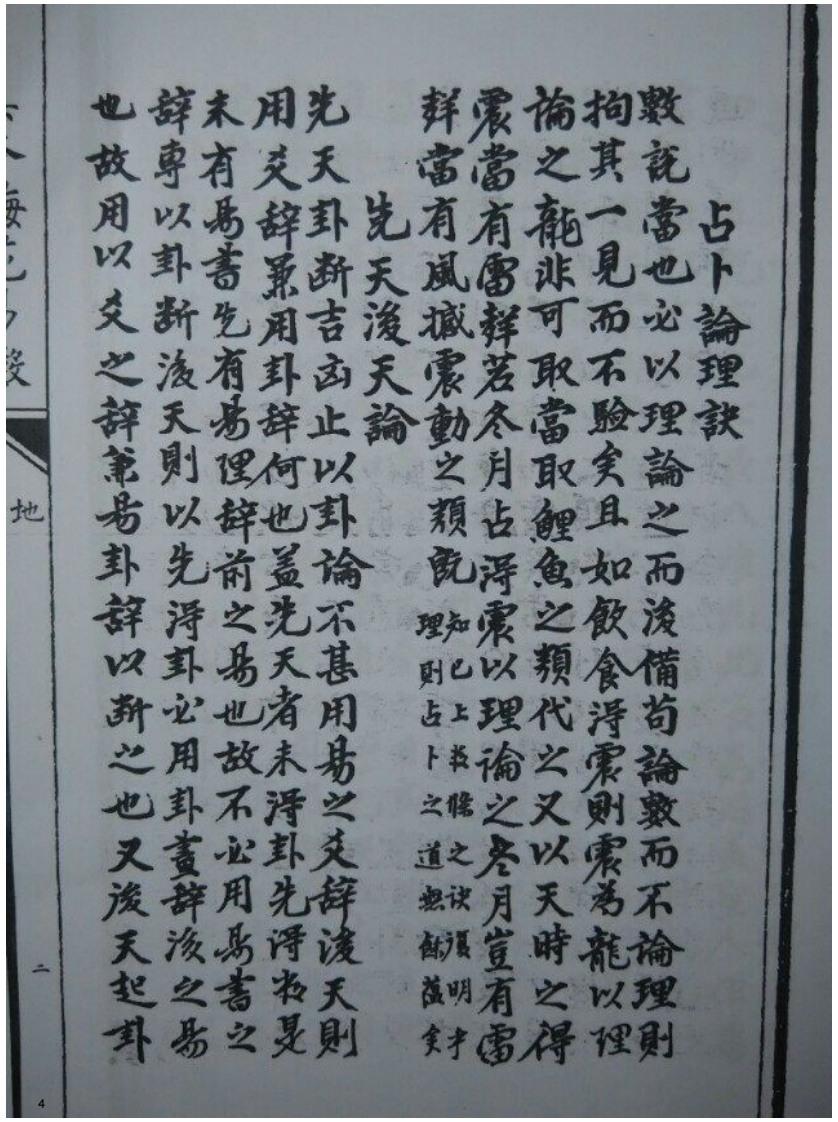 占卜論理訣
數說當也必以理論之而後備苟論數而不論理則
拘其一見而不驗矣且如飲食淂震則震為龍以理
論之龍非可取當取鯉魚之類代之又以天時之得
震當有雷聲若冬月占淂震以理論之冬月豈有雷
聲當有風撼震動之類既
知已上数條之訣復明乎
理則占卜之道無餘蘊矣
先天後天論
先天卦断吉凶止以卦論不甚用易之爻辞後天則
用爻辞兼用卦辞何也盖先天者未淂卦先淂数是
未有易書先有易理辞前之易也故不必用易書之
辞專以卦断後天則以先淂卦必用卦畫辞後之易
也故用以爻之辞兼易卦辞以断之也又後天起卦
地
二
4